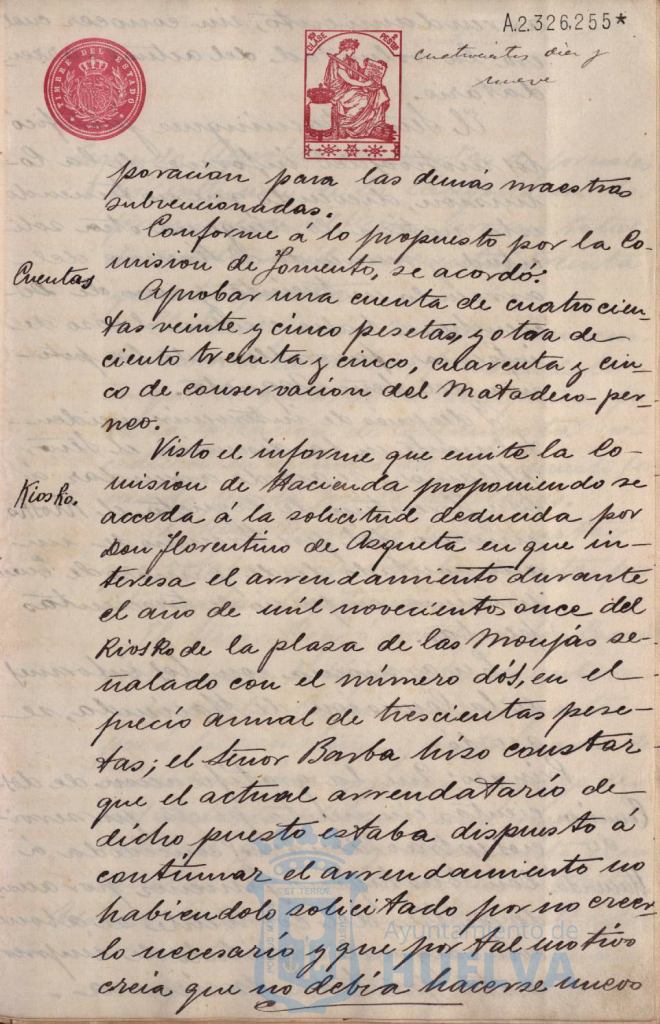 A.2.326.255*
TIMBRE DEL ESTADO
CLASE PESETA
cuatrocientos diez y
nueve
poracion para las demás maestras
subvencionadas.
Conforme á lo propuesto por la Co-
Cuentas
mision de Fomento, se acordó:
Aprobar una cuenta de cuatrocien-
tas veinte y cinco pesetas, y otra de
ciento treinta y cinco, cuarenta y cin-
co de conservacion del Matadero per-
neo.
Visto el informe que emite la Co-
Kiosko.
mision de Hacienda proponiendo se
acceda á la solicitud deducida por
Don Florentino de Azqueta en que in-
teresa el arrendamiento durante
el año de mil novecientos once del
Kiosko de la plaza de las Monjas se-
ñalado con el número dós, en el
precio annal de trescientas pese-
tas; el Señor Barba hizo constar
que el actual arrendatario de
dicho puesto estaba dispuesto á
continuar el arrendamiento no
habiendolo solicitado por no creer-
lo necesario y que por tal motivo
creia que no debia hacerse nuevo
Ayuntamiento de
HUELVA